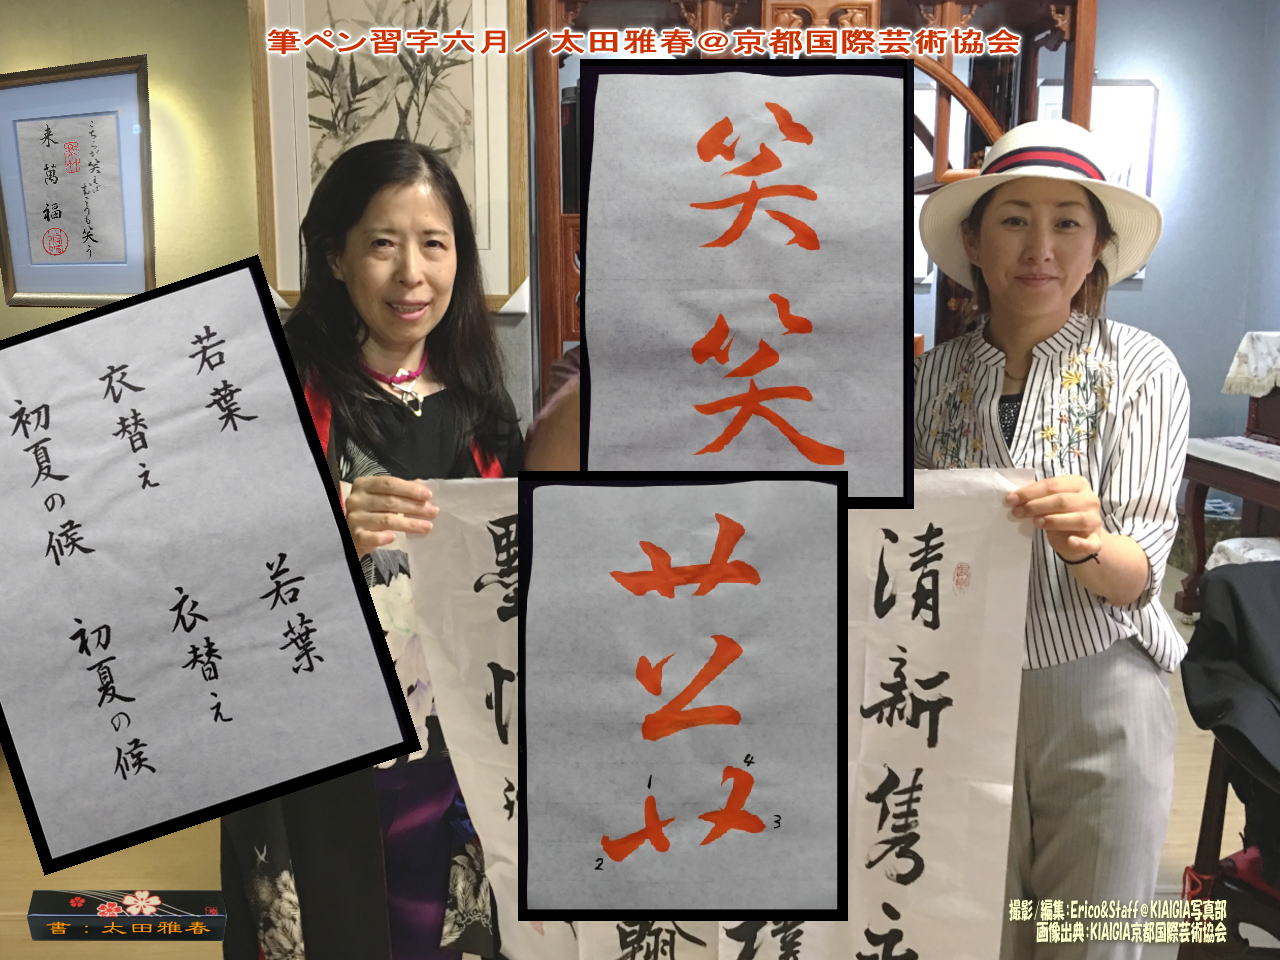 筆ペン習字六月／太田雅春＠京都国際芸術協会
こちらが笑えばむこうも笑う
来萬福
若葉
衣替え
初夏の候
若葉
衣替え
初夏の候
笑
笑
1
2
3
4
清新雋永
書：太田雅春
撮影/編集：Erico&Staff@KIAIGIA写真部
画像出典：KIAIGIA京都国際芸術協会